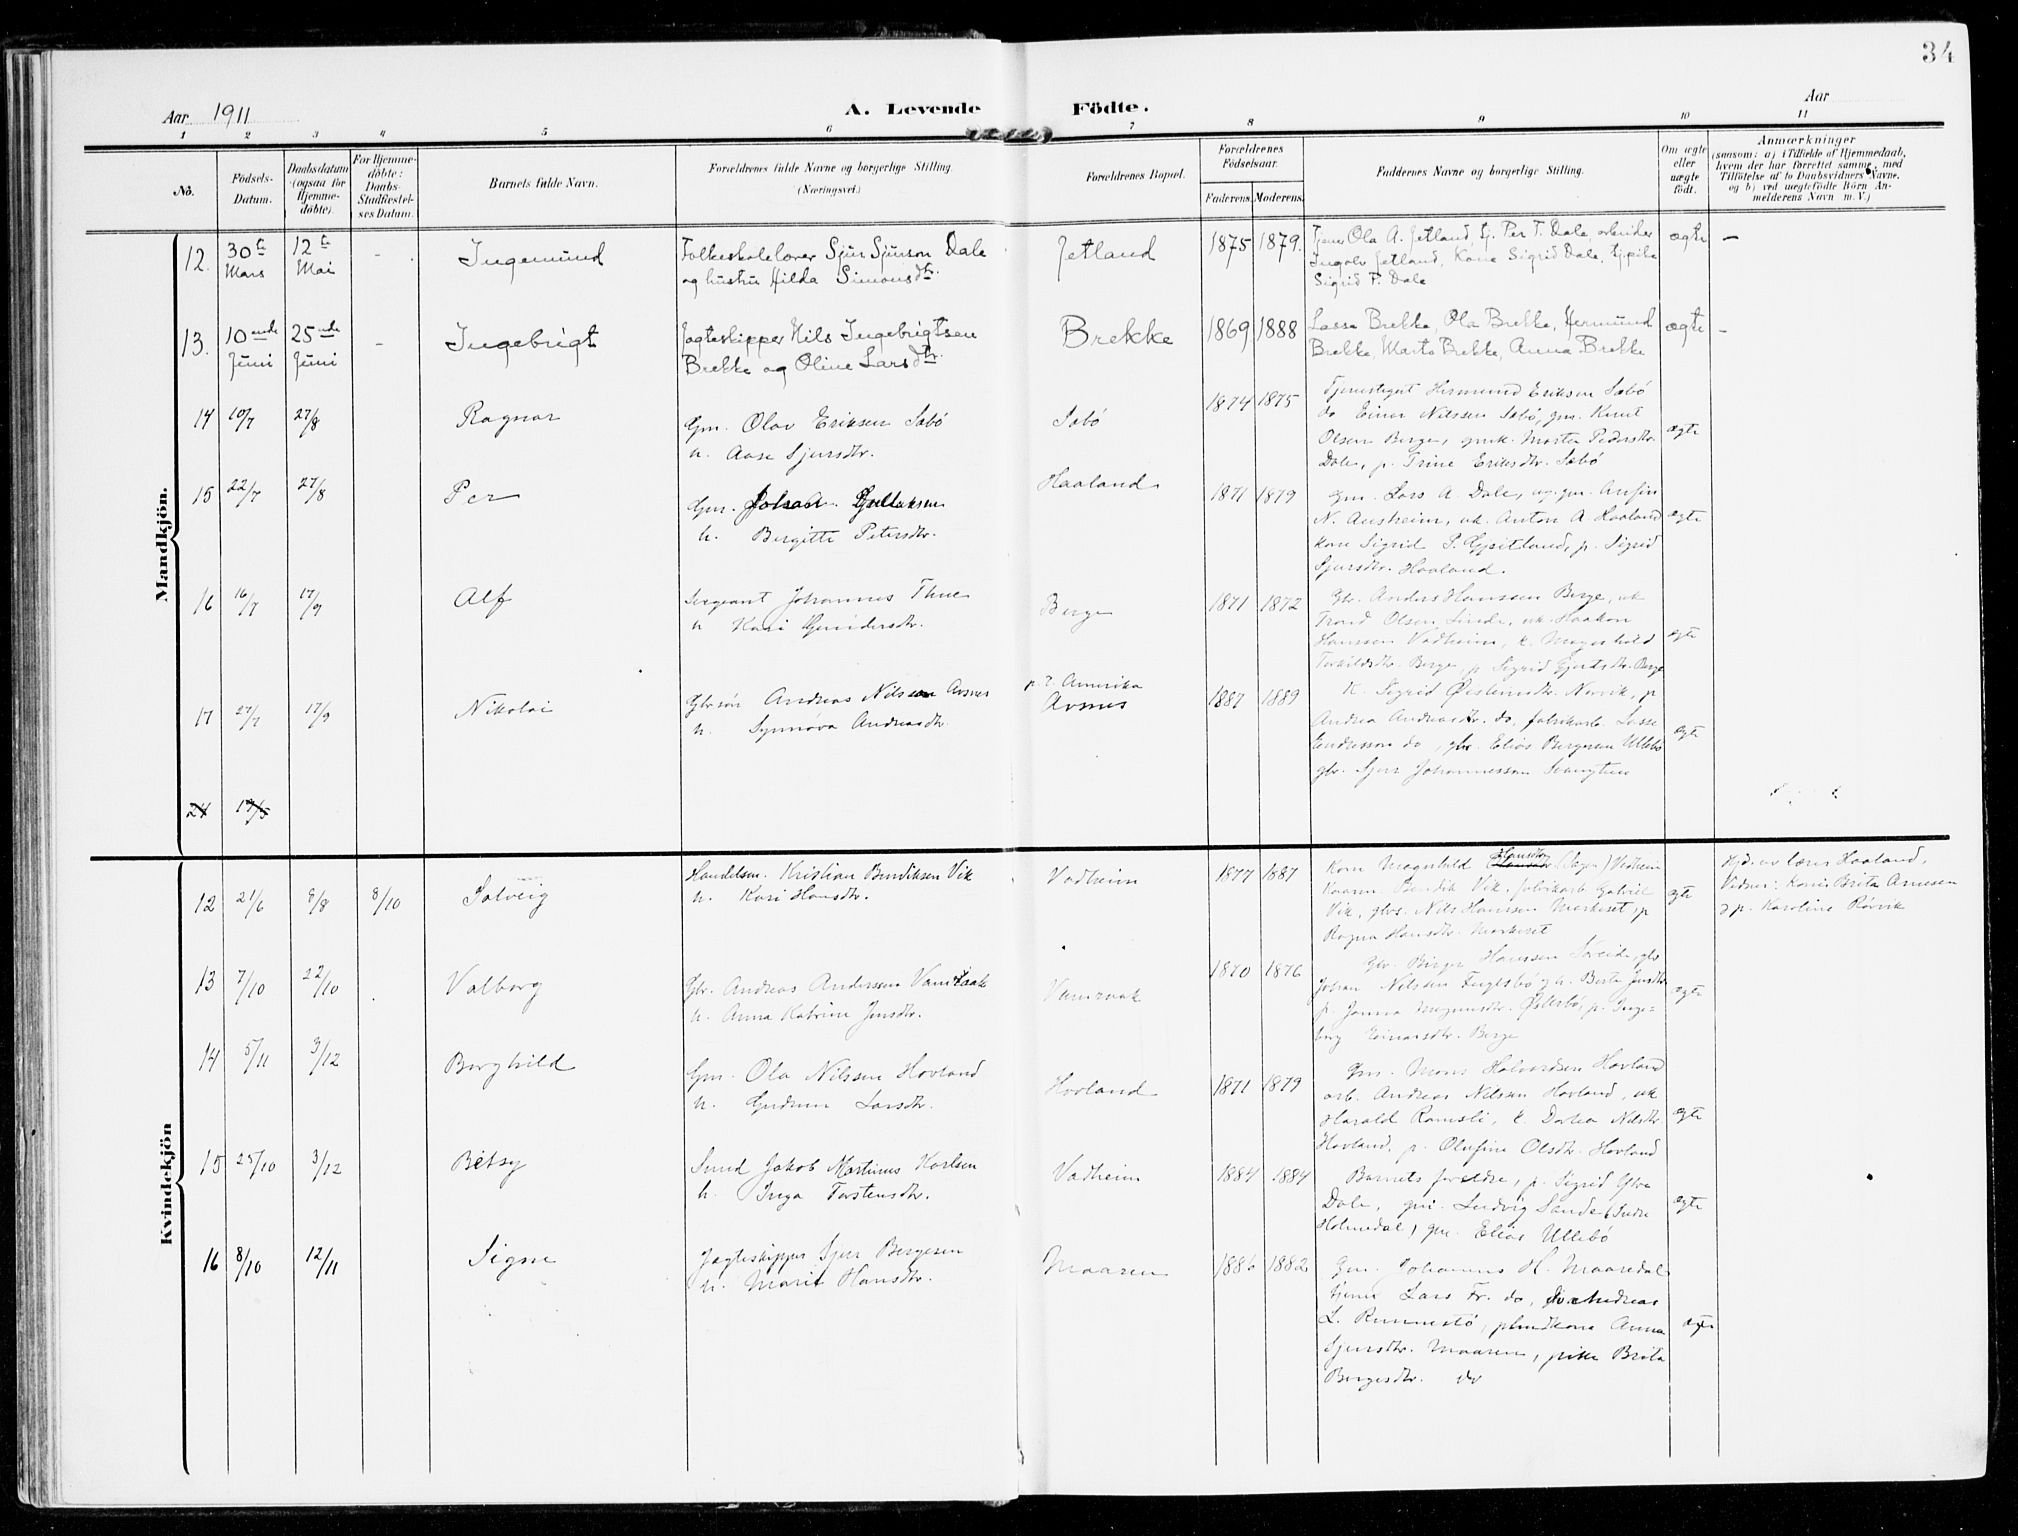 34
Aar 1911
A. Levende Födte.
Aar
1 2 3 4 5 6 7 8 9 10 11
No.
Födsels-Datum.
Daabsdatum (ogsaa for Hjemme-döbte).
For Hjemme-döbte: Daabs-Stadfæstel-ses Datum.
Barnets fulde Navn.
Forældrenes fulde Navne og borgerlige Stilling.
(Næringsvei.)
Forældrenes Bopæl.
Forældrenes Födselsaar.
Faderens. Moderens.
Faddernes Navne og borgerlige Stilling.
Om ægte eller uægte födt.
Anmærkninger
(saasom: a) i Tilfælde af Hjemmedaab,
hvem der har forrettet samme, med
Tilföielse af to Daabsvidners Navne,
og b) ved uægtefödte Börn An-
melderens Navn m. V.)
Mandkjön.
12. 30te Mars 12te Mai - Ingemund
Folkeskolelærer Sjur Sjurson Dale
og hustru Hilda Simonsdtr.
Jetland 1875 1879.
Tjener Ola A. Jetland, tj. Per T. Dale, arbeider
Ingolv Jetland, Kone Sigrid Dale, tj.pike
Sigrid P. Dale
ægte -
13. 10ende Juni 25nde Juni - Ingebrigt
Jagteskipper Nils Ingebrigtsen
Brekke og Oline Larsdtr.
Brekke 1869 1888
Lasse Brekke, Ola Brekke, Hermund
Brekke, Marta Brekke, Anna Brekke
ægte -
14 10/7 27/8 Ragnar
Gm. Olav Eriksen Sæbö
h. Aase Sjursdtr.
Sæbö 1874 1875
Tjenestegut Hermund Eriksen Sæbö
do Einar Nilssen Sæbö, gm. Knut
Olsen Berge, gmk. Marta Pedersdtr
Dale, p. Trine Eriksdtr. Sæbö
ægte
15 22/7 27/8 Per
Gm. Johan Gullaksen
h. Birgitte Petersdtr.
Haaland 1871 1879
Gm. Lars A. Dale, ug. gm. Anfin
N. Ausheim, uk. Anton A. Haaland
kone Sigrid S. Gjeitland, p. Sigrid
Sjursdtr. Haaland.
ægte
16 16/7 17/9 Alf
Sergeant Johannes Thue
h Kari Gundersdtr.
Berge 1871 1872
Gbr. Anders Hanssen Berge, uk
Trond Olsen Linde, uk. Haakon
Hanssen Vadheim, k. Magnhild
Torkildsdtr. Berge, p. Sigrid Gjertsdtr. Berge
ægte
17 27/7 17/9 Nikolai
Gbrsön Andreas Nilssen Avsnes
h. Synnöva Andreasdtr.
p. t. Amerika
Avsnes 1887 1889
K. Sigrid Öisteinsdtr. Nervik, p
Andrea Andreasdtr. do, fabrikarb. Lasse
Endresson do, gbr. Elias Bergesen Ullebö
gbr. Sjur Johannesson
ægte
24 19/5
Kvindekjön
12 21/6 8/8 8/10 Solveig
Handelsm. Kristian Bendiksen Vik
h. Kari Hansdtr.
Vadheim 1877 1887
Kone Magnhild Hansdtr. Vadheim
Bendik Vik, fabrikarb Gabriel
Vik, gbrs. Nils Hanssen Morkeset, p
Ragna Hansdtr. Morkeset
ægte
Hjd. av lærer Haaland,
Vidner: Kone Brita Arnesen
p. Karoline Rörvik
13 7/10 22/10 Valborg
Gbr. Andreas Anderssen Vamraak
h. Anna Katrine Jensdtr.
Vamraak 1870 1876
Gbr. Birger Hanssen Söreide, gbr
Johan Nilssen Fuglesbö, gk. Berta Jensdtr
p. Janna Magnusdtr. Östebö, p. Inge-
borg Einarsdtr. Berge
ægte
14 5/11 3/12 Borghild
Gm. Ola Nilssen Hovland
h. Gudrun Larsdtr.
Hovland 1871 1879
Gm. Mons Halvardsen Hovland
arb. Andreas Nilssen Hovland, uk
Harald Ramsli, k. Dortea Nilsdtr.
Hovland, p. Olufine Olsdtr. Hovland
ægte
15 25/10 3/12 Betsy
Smed Jakob Martinus Karlsen
h. Inga Torstensdtr.
Vadheim 1884 1884
Barnets foreldre, p. Sigrid
Dale, gm. Ludvig Sande (Indre
Holmedal) gm. Elias Ullebö
ægte
16 8/10 12/11 Signe
Jagteskipper Sjur Bergesen
h. Marie Hansdtr.
Maaren 1886 1882
Gm. Johannes H. Maaredal
tjener Lars Fr. do, Andreas
L. Runnestö, Anna
Sjursdtr. Maaren, pike Brita
Bergesdtr. do
ægte